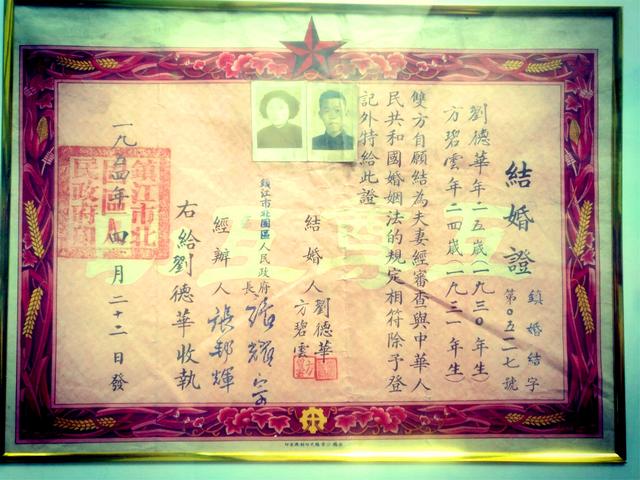 結婚證
鎮婚結字
第0五一七號
劉德華年二五歲(一九三0年生)
方碧雲年二四歲(一九三一年生)
雙方自願結為夫妻經審查與中華人
民共和國婚姻法的規定相符除予登
記外特給此證
結婚人劉德華
方碧雲
鎮江市北固區人民政府
區長
經辦人張邦輝
右給劉德華收執
一九五四年四月二十二日發
鎮江市北
固區人
民政府印